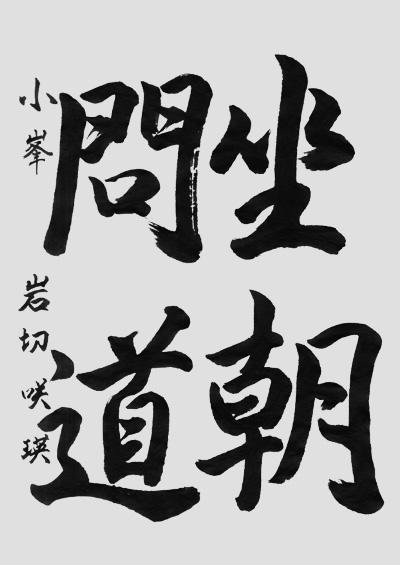 坐朝
問道
小峯 岩切咲瑛